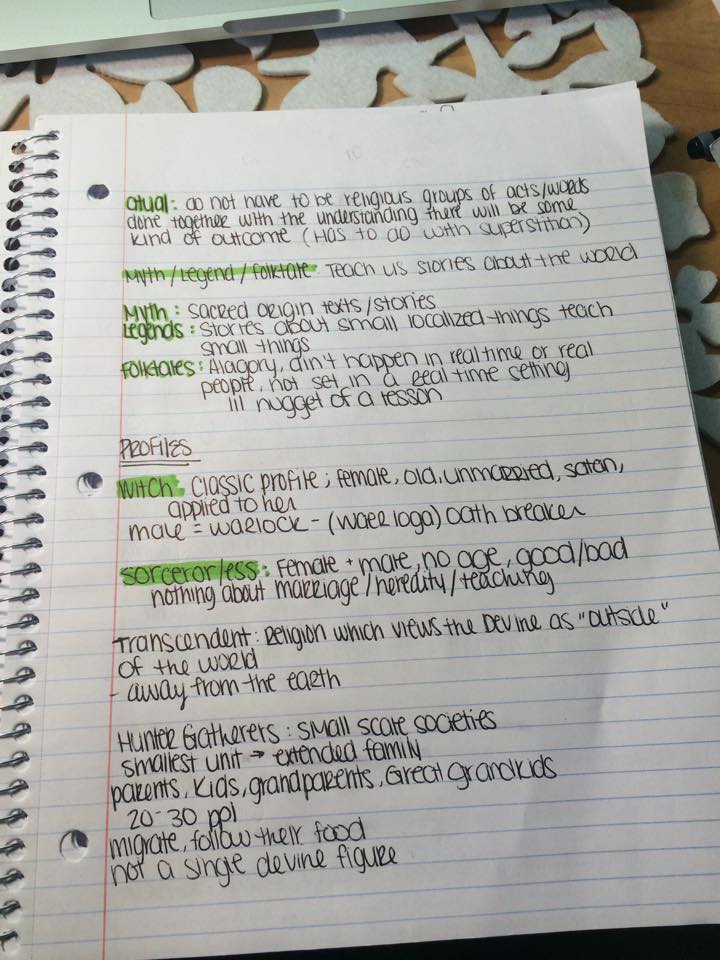 atual: do not have to be religious groups of acts/words
done together with the understanding there will be some
kind of outcome (Has to do with superstition)
Myth/Legend/folktale Teach us stories about the world
Myth: Sacred origin texts/stories
Legends: Stories about small localized things teach
small things
Folktales: Alagory, din't happen in real time or real
people, not set in a real time setting
lil nugget of a lesson
PROFILES
Witch: Classic profile; female, old, unmarried, satan,
applied to her
male = warlock - (waerloga) oath breaker
Sorceror/ess: Female + male, no age, good/bad
nothing about marriage/heredity/teaching
Transcendent: Religion which views the Devine as "outside"
of the world
- away from the earth
Hunter Gatherers: small scale societies
smallest unit → extended family
parents, kids, grandparents, Great Grandkids
20-30 ppl
migrate, follow their food
not a single devine figure